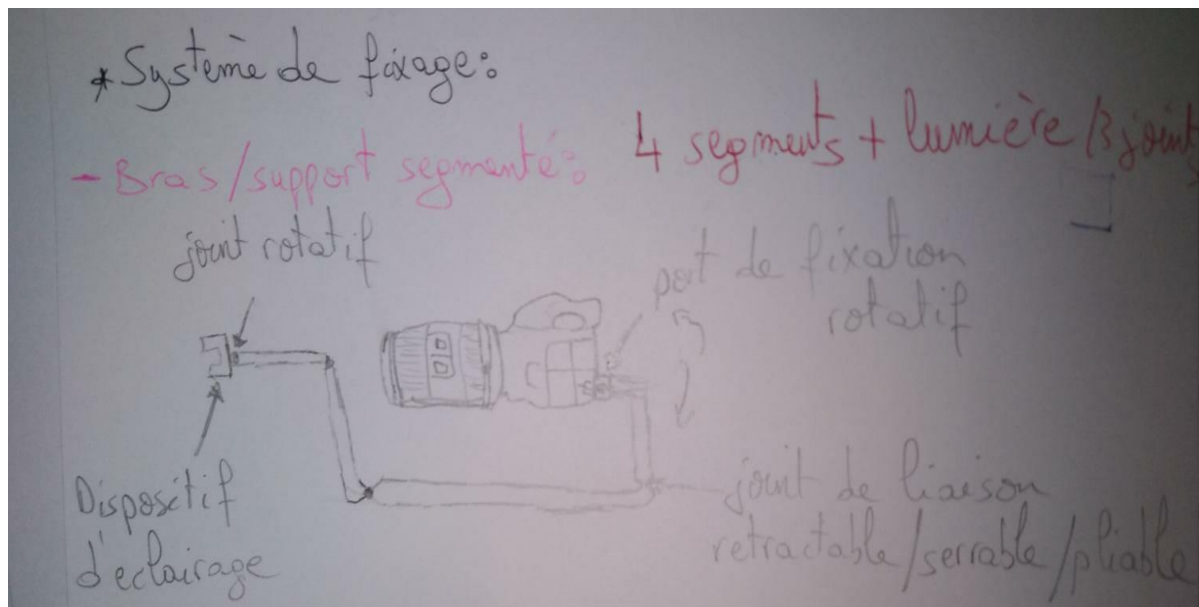 * Système de fixage:
- Bras/support segmenté: 4 segments + lumière/3 joints
joint rotatif
port de fixation
rotatif
Dispositif
d'eclairage
joint de liaison
retractable/serrable/pliable